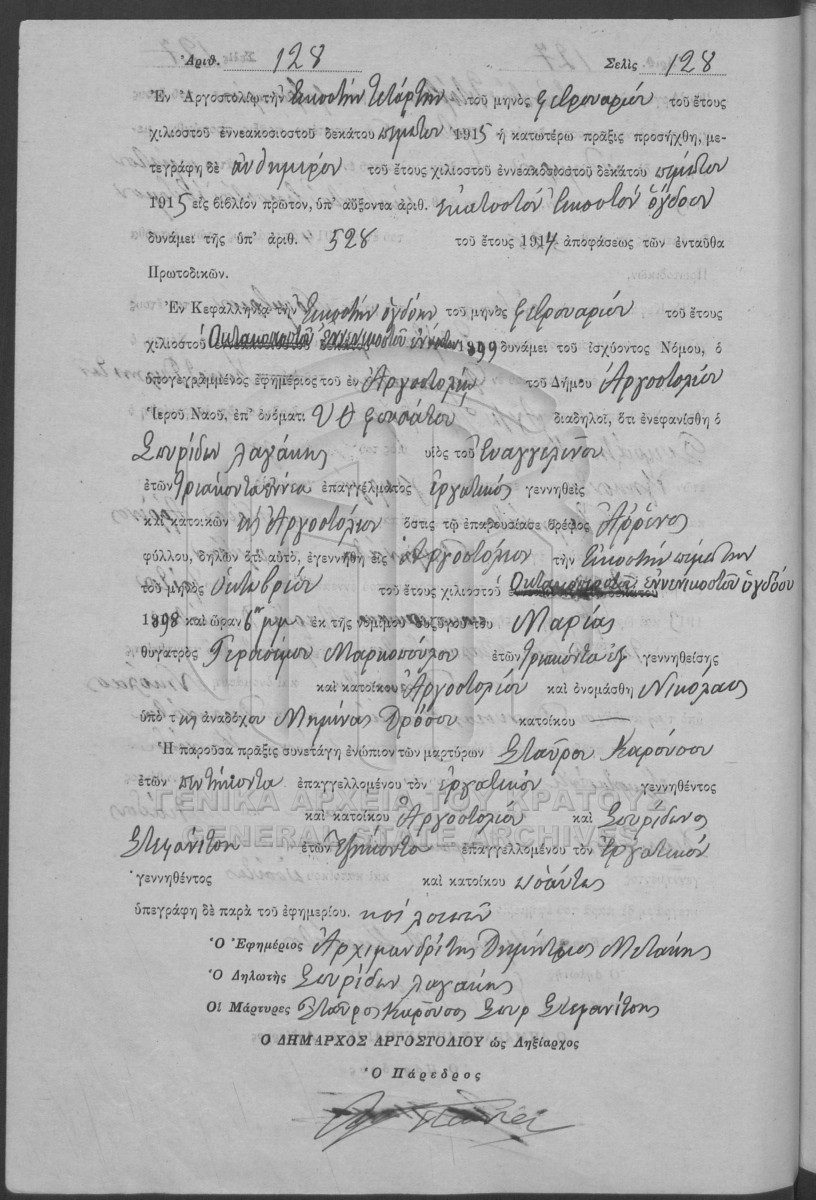 Ἀριθ. 128 Σελὶς 128
Ἐν Ἀργοστολίῳ τὴν Εἰκοστὴν τετάρτην τοῦ μηνὸς Φεβρουαρίου τοῦ ἔτους
χιλιοστοῦ ἐννεακοσιοστοῦ δεκάτου πέμπτου 1915 ἡ κατωτέρω πρᾶξις προσήχθη, με-
τεγράφη δὲ αὐθημερὸν τοῦ ἔτους χιλιοστοῦ ἐννεακοσιοστοῦ δεκάτου πέμπτου
1915 εἰς βιβλίον πρῶτον, ὑπ' αὔξοντα ἀριθ. ἑκατοστὸν εἰκοστὸν ὄγδοον
δυνάμει τῆς ὑπ' ἀριθ. 528 τοῦ ἔτους 1914 ἀποφάσεως τῶν ἐνταῦθα
Πρωτοδικῶν.
Ἐν Κεφαλληνίᾳ τὴν Εἰκοστὴν ὀγδόην τοῦ μηνὸς Φεβρουαρίου τοῦ ἔτους
χιλιοστοῦ Ὀκτακοσιοστοῦ ἐννενηκοστοῦ ἐννάτου 1899 δυνάμει τοῦ ἰσχύοντος Νόμου, ὁ
ὑπογεγραμμένος ἐφημέριος τοῦ ἐν Ἀργοστολίῳ τοῦ Δήμου Ἀργοστολίου
Ἱεροῦ Ναοῦ, ἐπ' ὀνόματι Υ Θ Φουσάτου διαδηλοῖ, ὅτι ἐνεφανίσθη ὁ
Σπυρίδων Λαγάκης υἱὸς τοῦ Εὐαγγελινοῦ
ἐτῶν Τριάκοντα ἐννέα ἐπαγγέλματος ἐργατικός γεννηθεὶς
καὶ κατοικῶν εἰς Ἀργοστόλιον ὅστις τῷ ἐπαρουσίασε βρέφος Ἄρρενος
φύλλου, δηλῶν ὅτι αὐτὸ, ἐγεννήθη εἰς Ἀργοστόλιον τὴν Εἰκοστὴν πέμπτην
τοῦ μηνὸς Ὀκτωβρίου τοῦ ἔτους χιλιοστοῦ Ὀκτακοσιοστοῦ ἐννενηκοστοῦ ὀγδόου
1898 καὶ ὥραν 6ην μμ ἐκ τῆς νομίμου συζύγου του Μαρίας
θυγατρὸς Γερασίμου Μαρκοπούλου ἐτῶν Τριάκοντα ἓξ γεννηθείσης
καὶ κατοίκου Ἀργοστολίου καὶ ὀνομάσθη Νικόλαος
ὑπὸ τῆς ἀναδόχου Μηρίνας Δρόσου κατοίκου —
Ἡ παροῦσα πρᾶξις συνετάγη ἐνώπιον τῶν μαρτύρων Σταύρου Καρούσου
ἐτῶν πεντήκοντα ἐπαγγελλομένου τὸν ἐργατικόν γεννηθέντος
καὶ κατοίκου Ἀργοστολίου καὶ Σπυρίδωνος
Στεφανίτση ἐτῶν Ἑξήκοντα ἐπαγγελλομένου τὸν Ἐργατικόν
γεννηθέντος καὶ κατοίκου ὡσαύτως
ὑπεγράφη δὲ παρὰ τοῦ ἐφημερίου. καὶ λοιπῶν
Ὁ Ἐφημέριος Ἀρχιμανδρίτης Δημήτριος Μεταξᾶς
Ὁ Δηλωτὴς Σπυρίδων Λαγάκης
Οἱ Μάρτυρες Σταῦρος Καροῦσος Σπυρ Στεφανίτσης
Ο ΔΗΜΑΡΧΟΣ ΑΡΓΟΣΤΟΛΙΟΥ ὡς Ληξίαρχος
Ὁ Πάρεδρος
ΓΕΝΙΚΑ ΑΡΧΕΙΑ ΤΟΥ ΚΡΑΤΟΥΣ
GENERAL STATE ARCHIVES